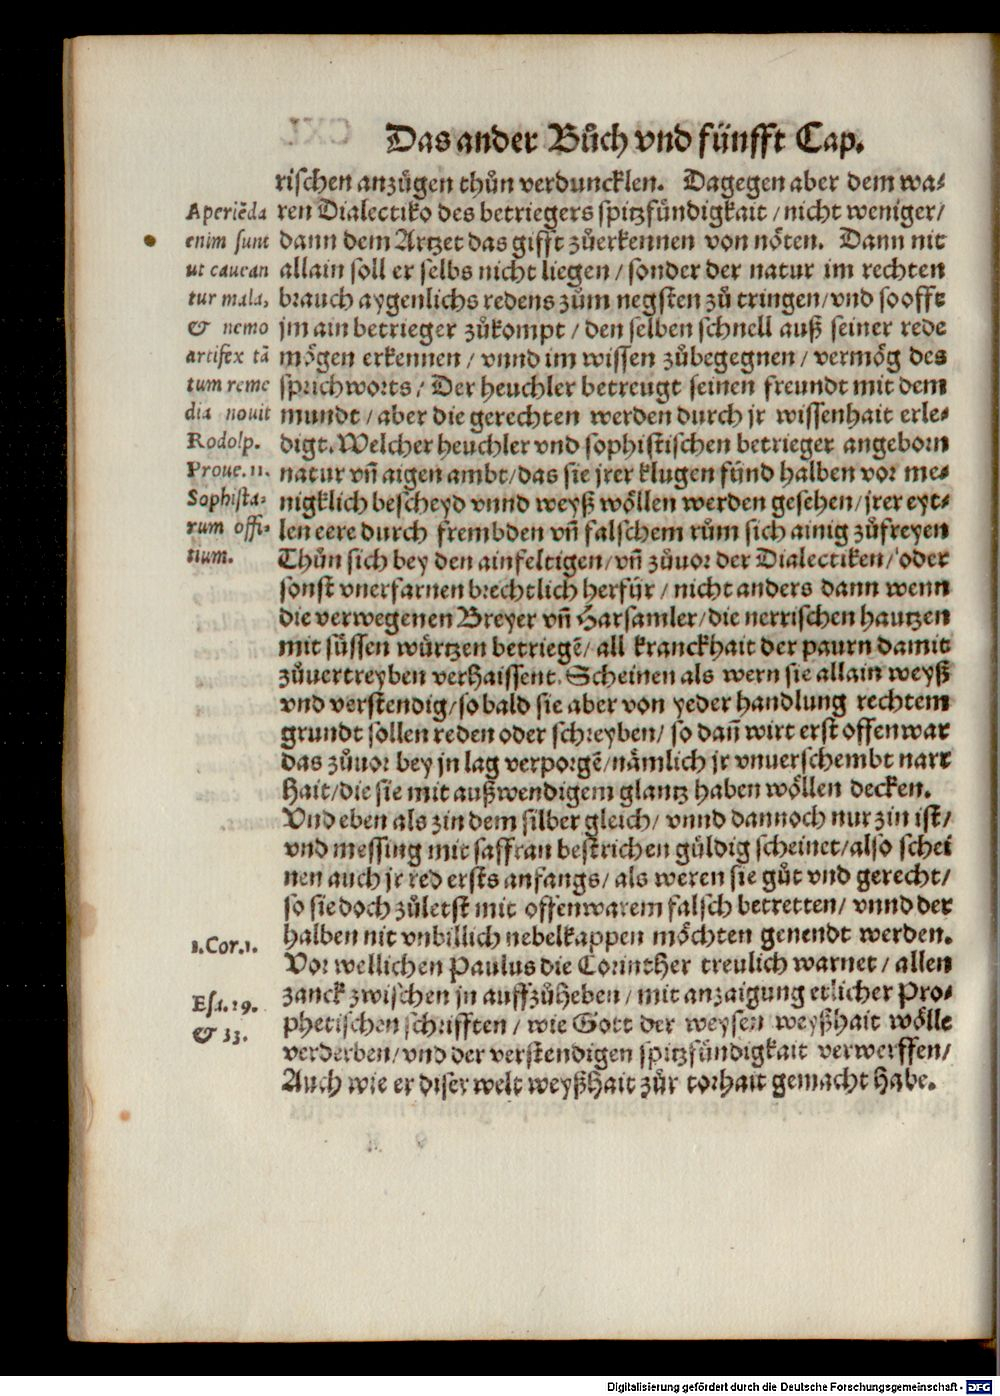 Das ander Bůch vnd fünfft Cap.
rischen anzügen thůn verduncklen. Dagegen aber dem wa⸗
ren Dialectiko des betriegers spitzfündigkait / nicht weniger /
dann dem Artzet das gifft zůerkennen von nöten. Dann nit
allain soll er selbs nicht liegen / sonder der natur im rechten
brauch aygenlichs redens zům negsten zů tringen / vnd so offt
jm ain betrieger zůkompt / den selben schnell auß seiner rede
mögen erkennen / vnnd im wissen zůbegegnen / vermög des
sprichworts / Der heuchler betreugt seinen freundt mit dem
mundt / aber die gerechten werden durch jr wissenhait erle⸗
digt. Welcher heuchler vnd sophistischen betrieger angeborn
natur vñ aigen ambt / das sie jrer klugen fünd halben vor me⸗
nigklich bescheyd vnnd weyß wöllen werden gesehen / jrer eyt⸗
len eere durch frembden vñ falschem rům sich ainig zůfreyen
Thůn sich bey den ainfeltigen / vñ zůuor der Dialectiken / oder
sonst vnerfarnen brechtlich herfür / nicht anders dann wenn
die verwegenen Breyer vñ Harsamler / die nerrischen hautzen
mit süssen würtzen betriegē / all kranckhait der paurn damit
zůuertreyben verhaissent. Scheinen als wern sie allain weyß
vnd verstendig / so bald sie aber von yeder handlung rechtem
grundt sollen reden oder schreyben / so dañ wirt erst offenwar
das zůuor bey jn lag verporgē / nämlich jr vnuerschembt narr
hait / die sie mit außwendigem glantz haben wöllen decken.
Vnd eben als zin dem silber gleich / vnnd dannoch nur zin ist /
vnd messing mit saffran bestrichen güldig scheinet / also schei
nen auch jr red ersts anfangs / als weren sie gůt vnd gerecht /
so sie doch zůletst mit offenwarem falsch betretten / vnnd der
halben nit vnbillich nebelkappen möchten genendt werden.
Vor wellichen Paulus die Corinther treulich warnet / allen
zanck zwischen jn auffzůheben / mit anzaigung etlicher Pro⸗
phetischen schrifften / wie Gott der weysen weyßhait wölle
verderben / vnd der verstendigen spitzfündigkait verwerffen /
Auch wie er diser welt weyßhait zůr torhait gemacht habe.
Aperiēda
enim sunt
ut cauean
tur mala,
& nemo
artifex tā
tum reme
dia nouit
Rodolp.
Proue. 11.
Sophista⸗
rum offi⸗
tium.
1. Cor. 1.
Esa. 29.
& 33.
Digitalisierung gefördert durch die Deutsche Forschungsgemeinschaft - DFG